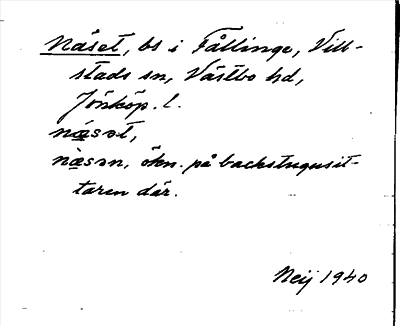 Näset, bs i Fållinge, Vill-
stads sn, Västbo hd,
Jönköp. l.
nä́sət,
nä̀sən, ökn. på backstugusit-
taren där.
Neij 1940